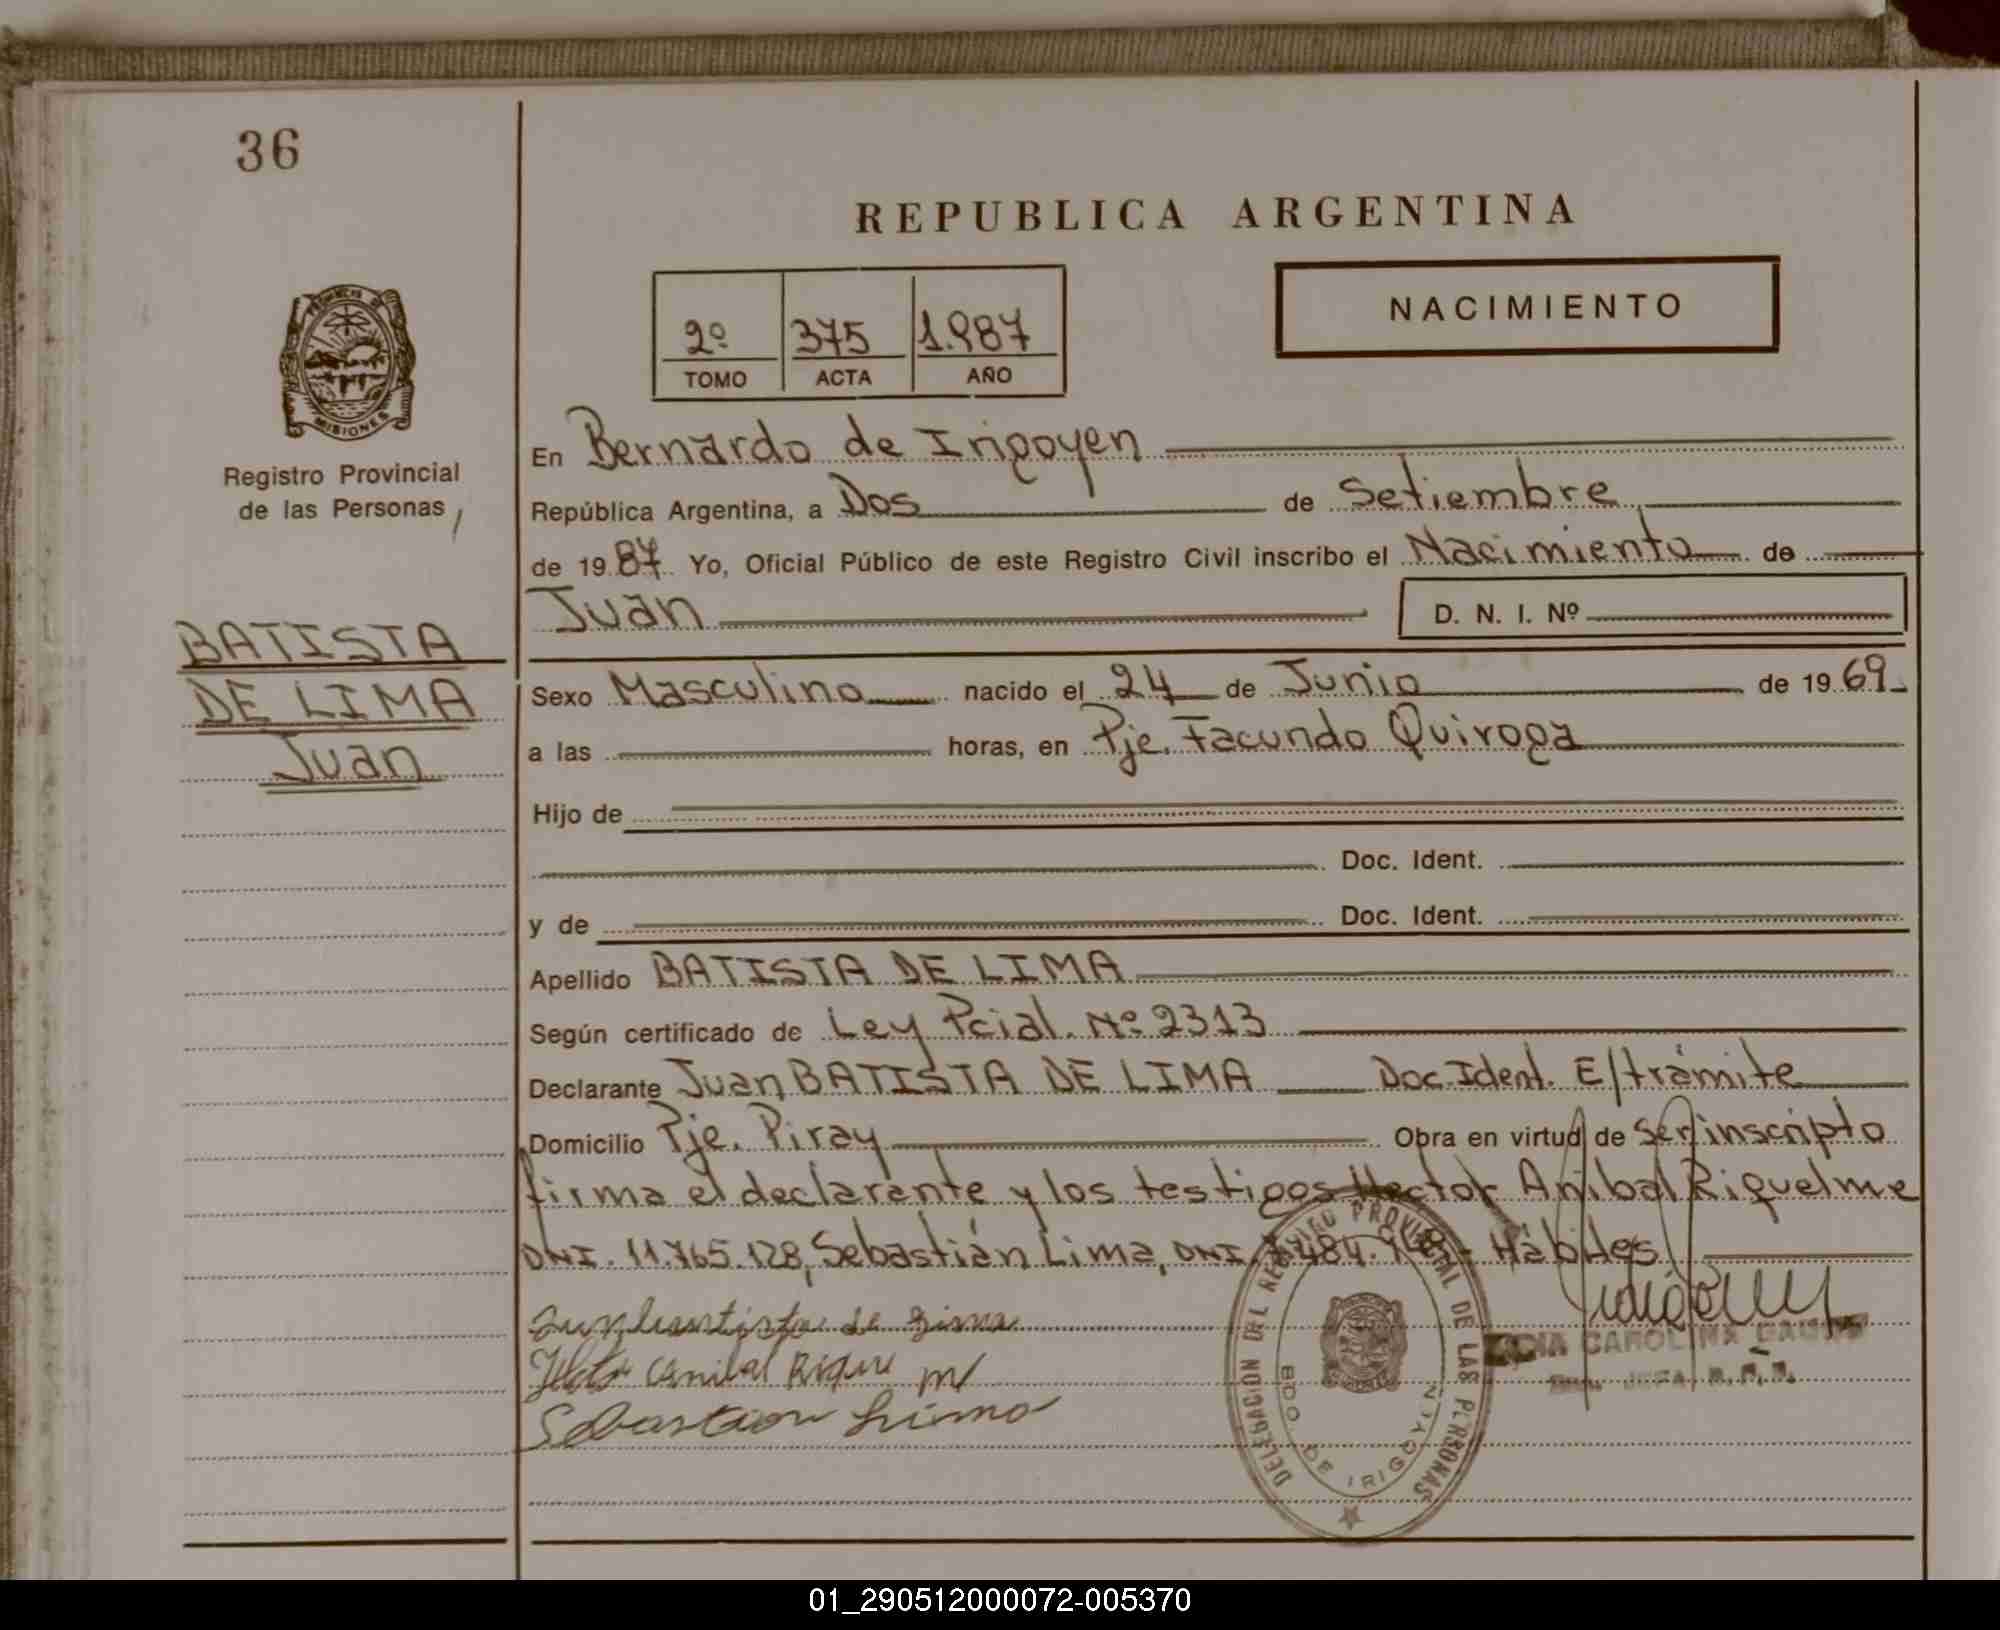 36
REPUBLICA ARGENTINA
NACIMIENTO
2º 375 1.987
TOMO ACTA AÑO
PROVINCIA DE
MISIONES
Registro Provincial
de las Personas
BATISTA
DE LIMA
Juan
En Bernardo de Irigoyen
República Argentina, a Dos de Setiembre
de 1987 Yo, Oficial Público de este Registro Civil inscribo el Nacimiento de
Juan D. N. I. Nº
Sexo Masculino nacido el 24 de Junio de 1969
a las horas, en Pje. Facundo Quiroga
Hijo de
Doc. Ident.
y de Doc. Ident.
Apellido BATISTA DE LIMA
Según certificado de Ley Pcial. Nº 2313
Declarante Juan BATISTA DE LIMA Doc. Ident. E/trámite
Domicilio Pje. Piray Obra en virtud de ser inscripto
firma el declarante y los testigos Hector Anibal Riquelme
DNI. 11.765.128, Sebastián Lima, DNI. Hábiles
de Lima
Anibal
Sebastian Lima
DELEGACION DEL REGISTRO PROVINCIAL DE LAS PERSONAS
BDO. DE IRIGOYEN
CAROLINA
JEFA
01_290512000072-005370